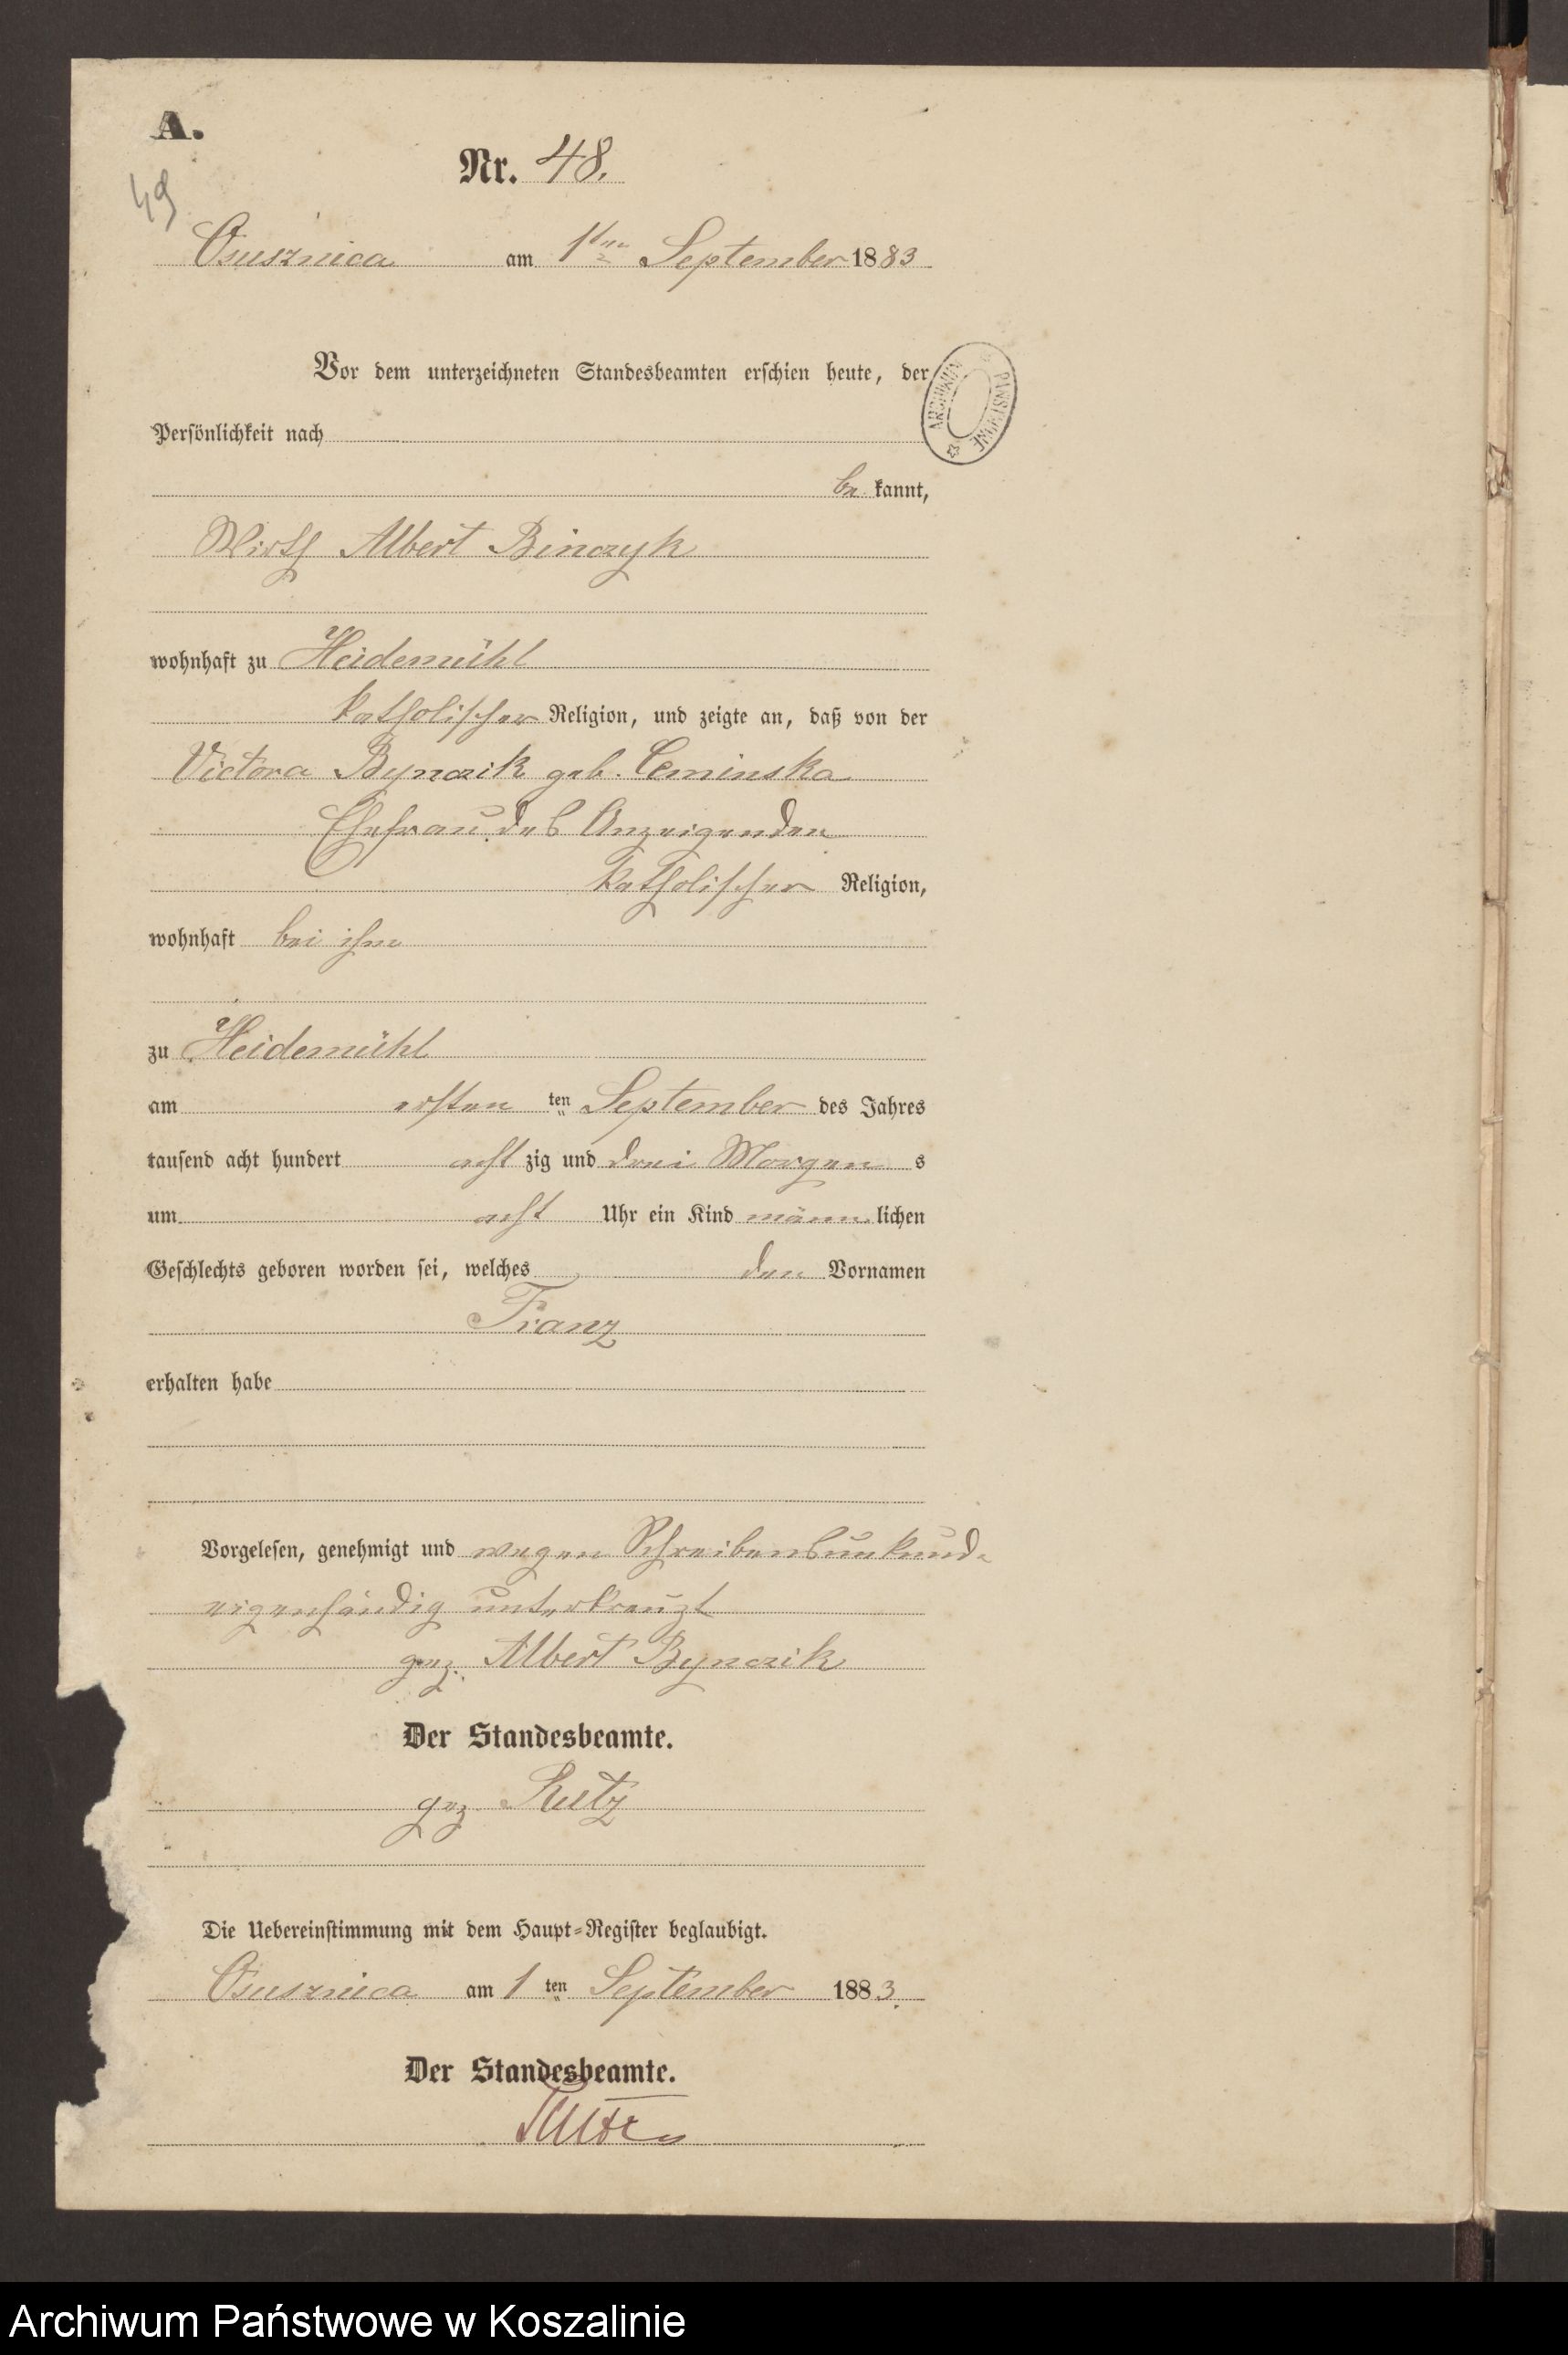 A.
Nr. 48.
49
Osusznica am 1ten September 1883
Vor dem unterzeichneten Standesbeamten erschien heute, der
Persönlichkeit nach
be kannt,
Wirth Albert Binczyk
wohnhaft zu Heidemühl
katholischer Religion, und zeigte an, daß von der
Victora Bynczik geb. Ceminska
Ehefrau des Anzeigenden
katholischer Religion,
wohnhaft bei ihm
zu Heidemühl
am ersten ten September des Jahres
tausend acht hundert acht zig und drei Morgen s
um acht Uhr ein Kind männ lichen
Geschlechts geboren worden sei, welches den Vornamen
Franz
erhalten habe
Vorgelesen, genehmigt und wegen Schreibensunkunde
eigenhändig unterkreuzt
gez. Albert Bynczik
Der Standesbeamte.
gez Rutz
Die Uebereinstimmung mit dem Haupt=Register beglaubigt.
Osusznica am 1 ten September 1883.
Der Standesbeamte.
ARCHIWUM PAŃSTWOWE
Archiwum Państwowe w Koszalinie